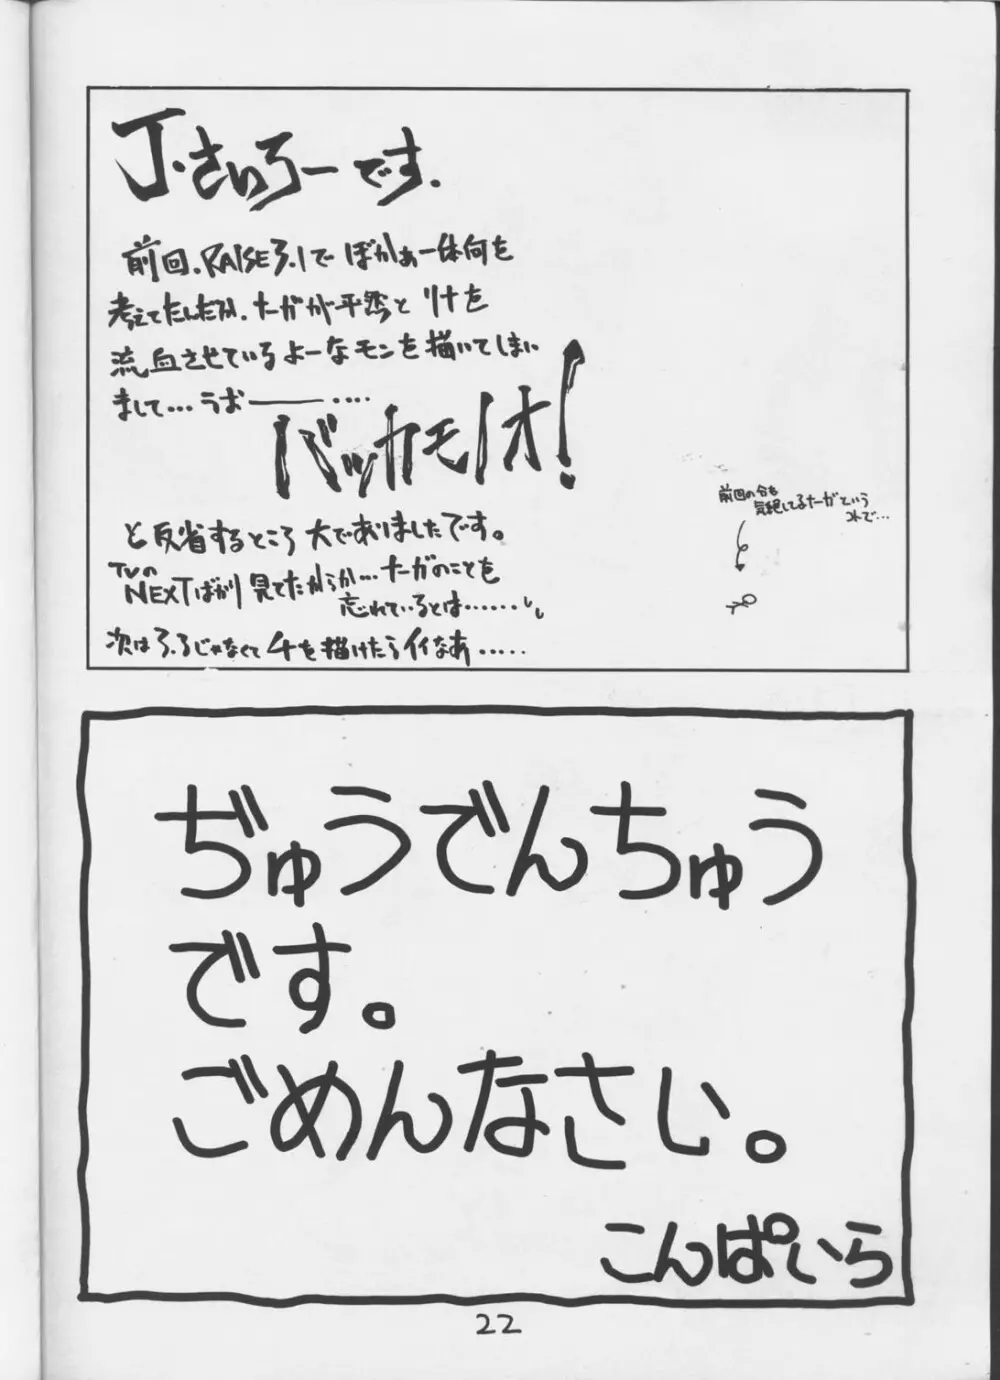 J・さいろーです.
前回.RAISE3.1で ぼかぁ一体何を
考えてたんだか.たーがが平然と リナを
流血させているよーなモンを描いてしまい
まして...うお――....
バッカモノオ!
と反省するところ大でありましたです。
TVの
NEXTばかり見てたからか...たーがのことを
忘れているとは......
次は3.3じゃなくて4を描けたらイイなあ.....
前回の分も
気絶してるたーがという
コトで...
ぢゅうでんちゅう
です。
ごめんなさい。
こんぱいら
22